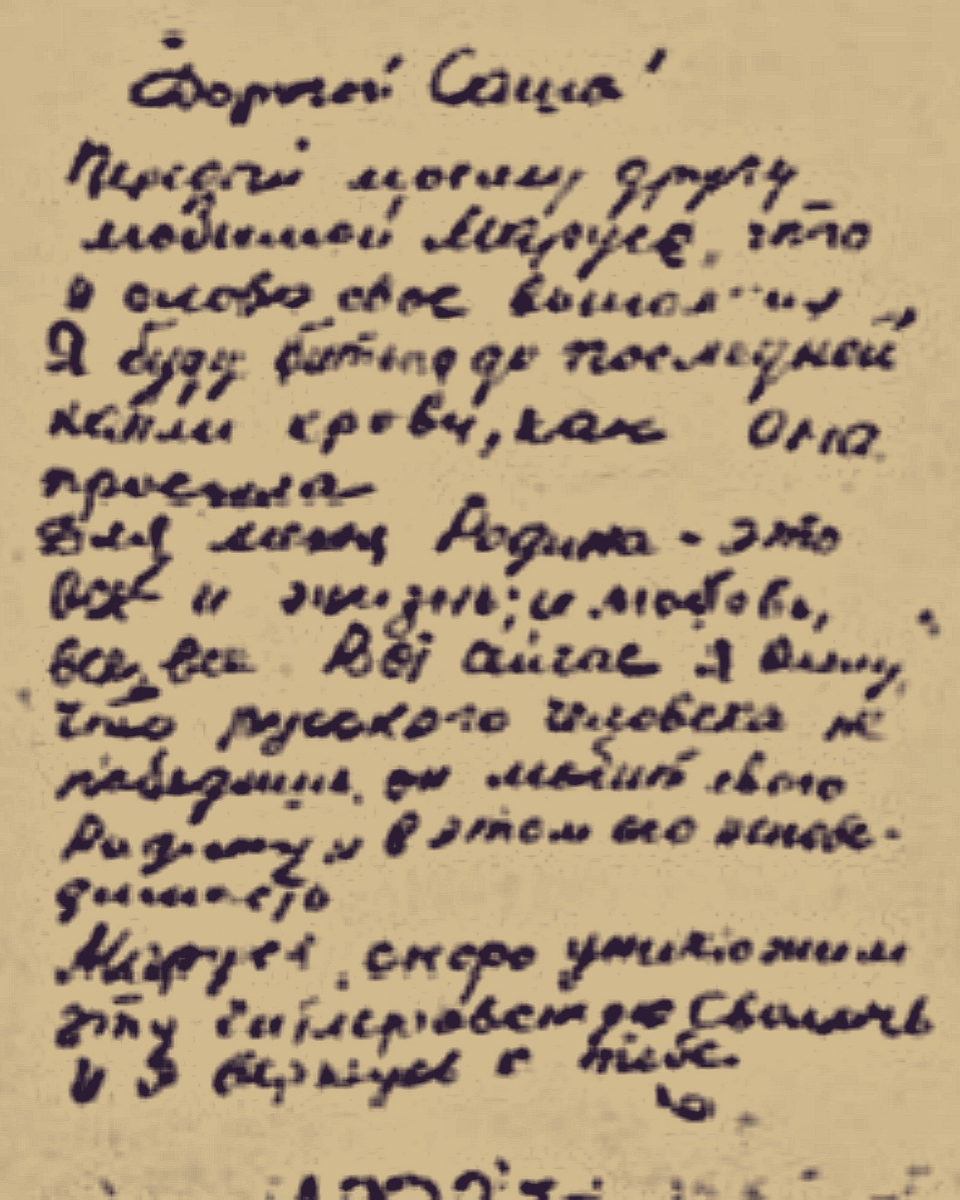 Дорогой Саша!
Передай моему другу
любимой Марусе, что
я слово свое выполнил
Я буду биться до последней
капли крови, как она
просила
Для меня Родина - это
всё и жизнь, и любовь,
все, все Вот сейчас я вижу,
что русского человека не
победишь, он любит свою
Родину и в этом его непобе-
димость
Маруся, скоро уничтожим
эту гитлеровскую сволочь
и я вернусь к тебе.